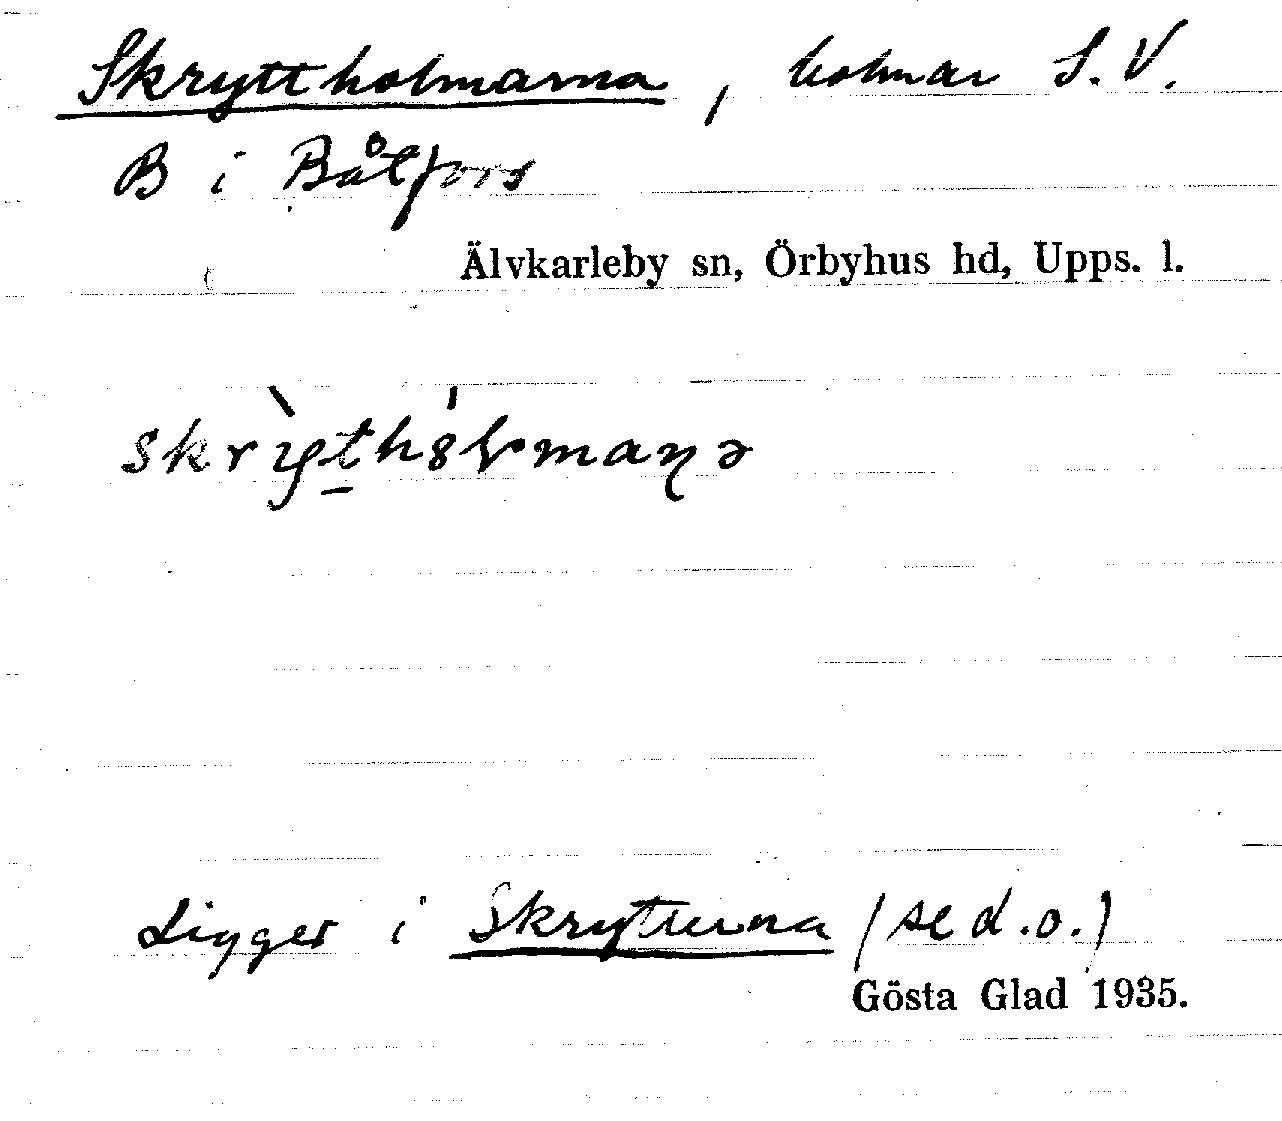 Skryttholmarna, holmar S.V.
B i Båtfors
Älvkarleby sn, Örbyhus hd, Upps. l.
Ligger i Skrytterna (se d.o.)
Gösta Glad 1935.